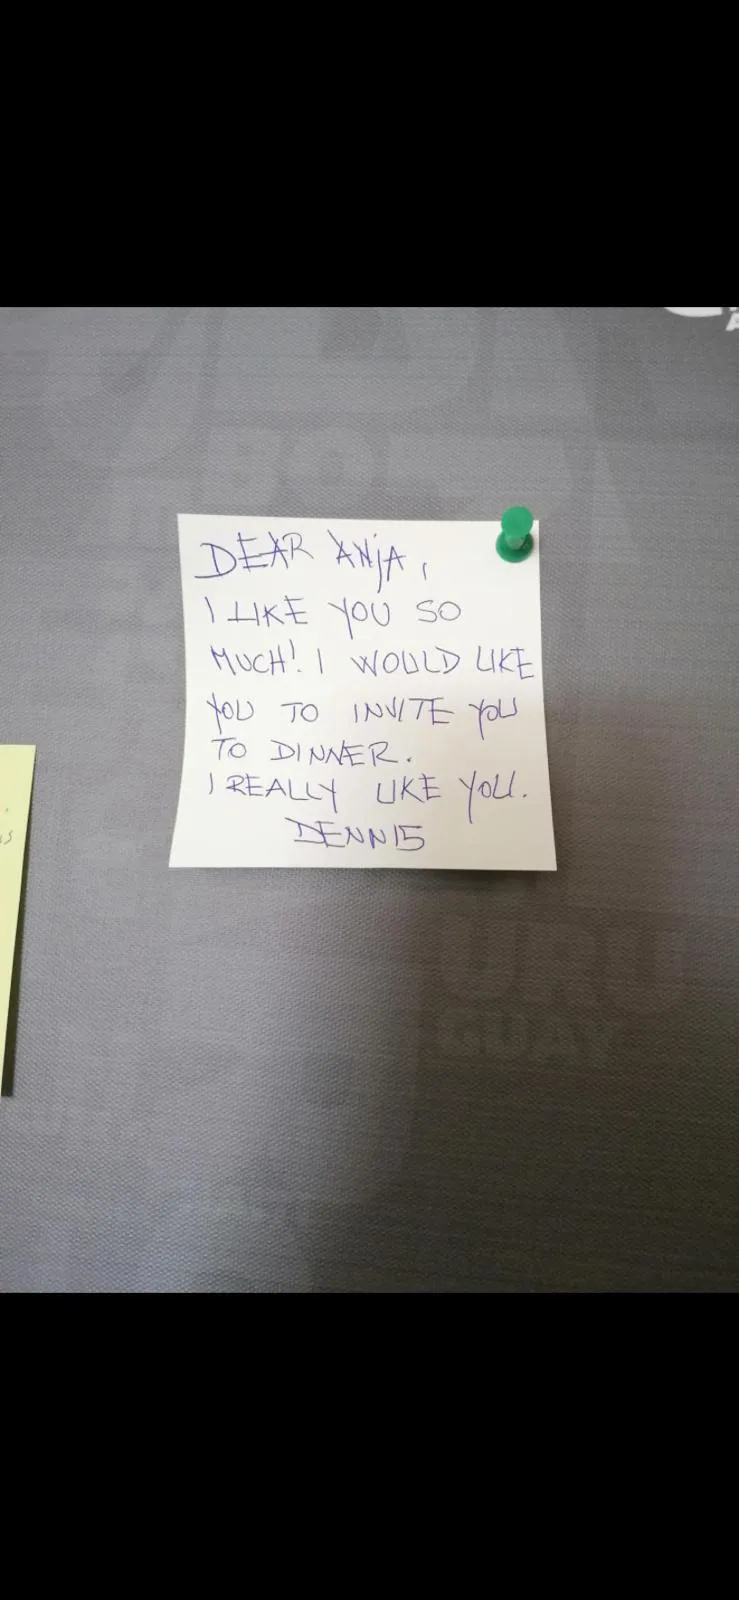 DEAR ANJA,
I LIKE YOU SO
MUCH! I WOULD LIKE
YOU TO INVITE YOU
TO DINNER.
I REALLY LIKE YOU.
DENNIS
URU
GUAY